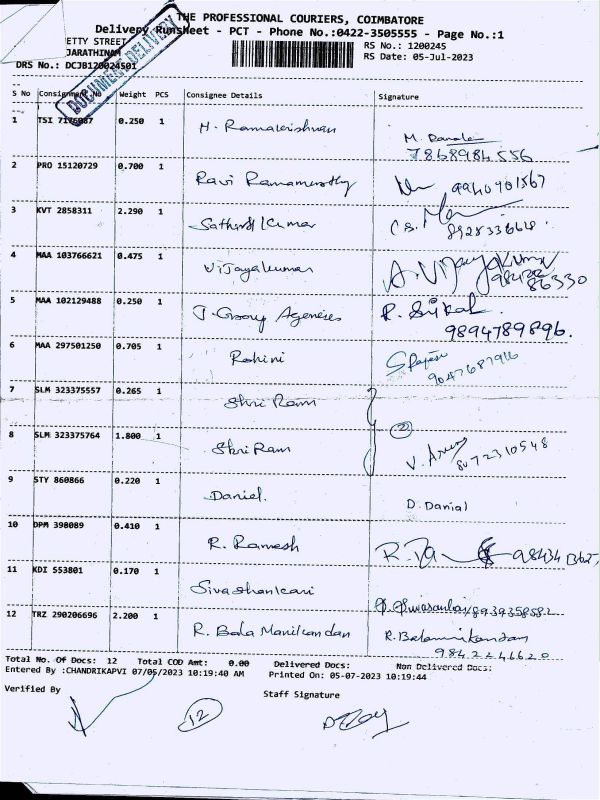 THE PROFESSIONAL COURIERS, COIMBATORE
Delivery Runsheet - PCT - Phone No.:0422-3505555 - Page No.:1
ETTY STREET
JARATHINAM
RS No.: 1200245
RS Date: 05-Jul-2023
DRS No.: DCJB120024501
DOCUMENT DELIVERY
S No Consignment No Weight PCS Consignee Details Signature
1 TSI 7176987 0.250 1 H. Ramakrishnan
7868984556
2 PRO 15120729 0.700 1 Ravi Ramamoorthy 9940901567
3 KVT 2858311 2.290 1 Sathish Kumar
4 MAA 103766621 0.475 1 Vijayakumar A. Vijayakumar
86330
5 MAA 102129488 0.250 1 J. Group Agencies
9894789896.
6 MAA 297501250 0.705 1 Rohini
9047687916
7 SLM 323375557 0.265 1 Shri Ram
2
8 SLM 323375764 1.800 1 Shri Ram
8072310548
9 STY 860866 0.220 1 Daniel. D. Danial
10 DPM 398089 0.410 1 R. Ramesh
11 KDI 553801 0.170 1 Sivashankari
8939358582
12 TRZ 290206696 2.200 1 R. Bala Manikandan R. Balamanikandan
9842246620
Total No. Of Docs: 12 Total COD Amt: 0.00 Delivered Docs: Non Delivered Docs:
Entered By :CHANDRIKAPVI 07/05/2023 10:19:40 AM Printed On: 05-07-2023 10:19:44
Verified By Staff Signature
12